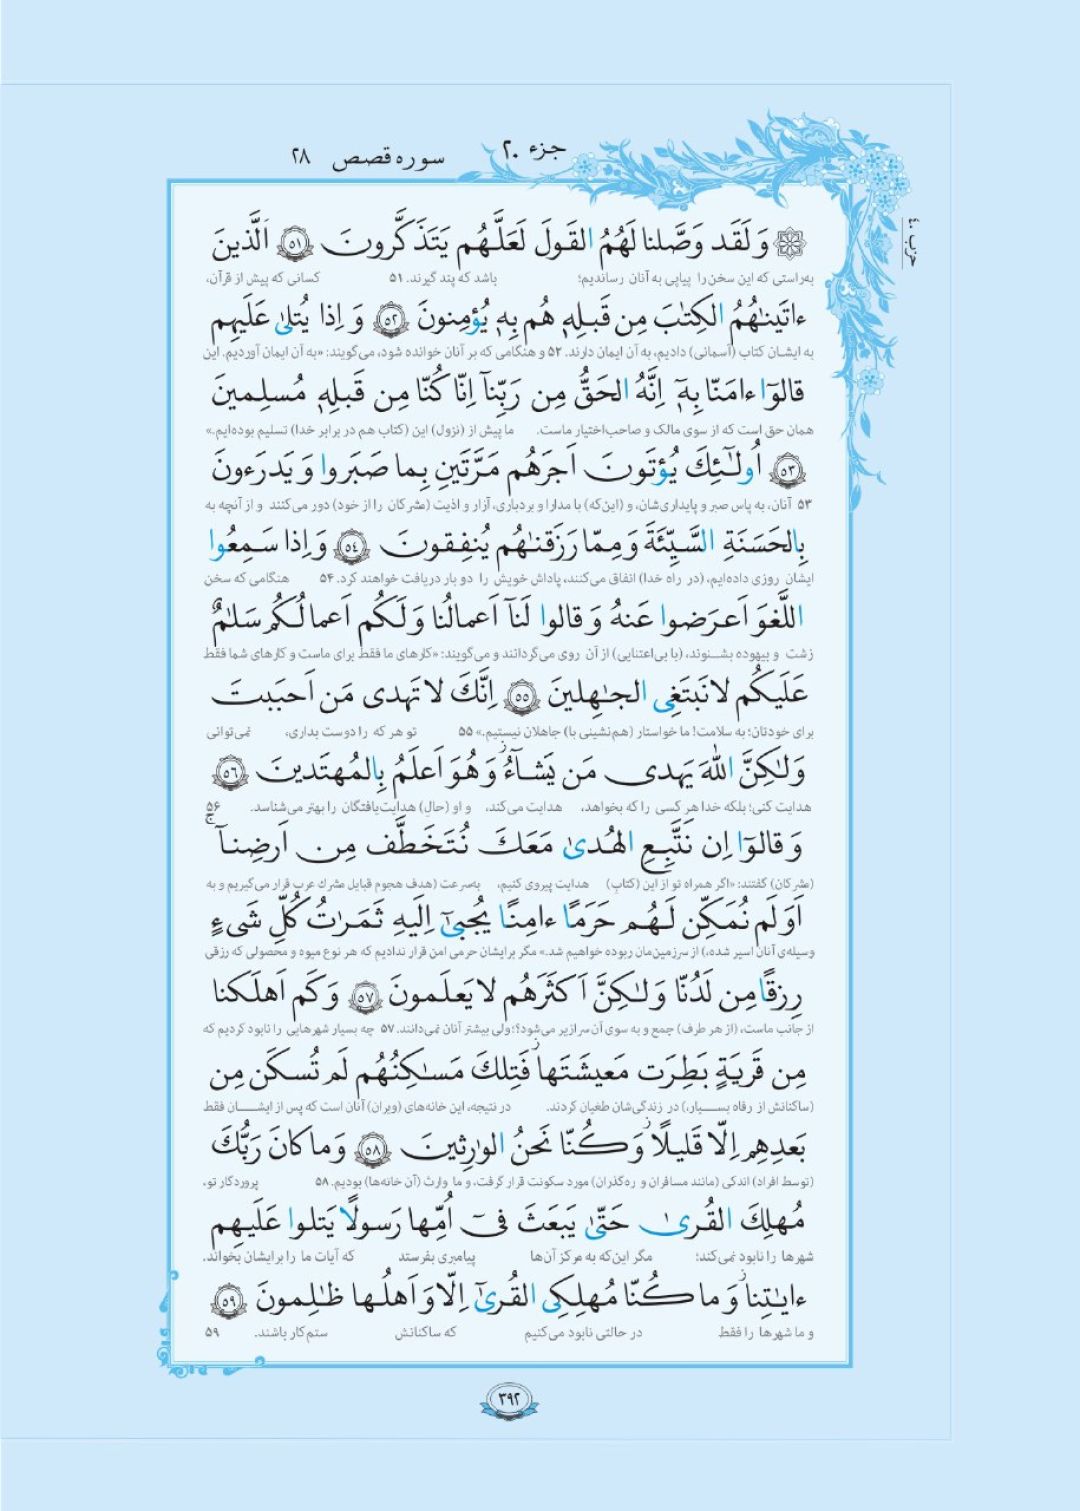 جزء ۲۰
سوره قصص ۲۸
حزب ۴۰
وَ لَقَد وَصَّلنا لَهُمُ القَولَ لَعَلَّهُم يَتَذَكَّرونَ ﴿٥١﴾ اَلَّذينَ
به‌راستی که این سخن را پیاپی به آنان رساندیم؛ باشد که پند گیرند. ۵۱ کسانی که پیش از قرآن،
ءاتَينٰهُمُ الكِتٰبَ مِن قَبلِهٖ هُم بِهٖ يُؤمِنونَ ﴿٥٢﴾ وَ اِذا يُتلىٰ عَلَيهِم
به ایشان کتاب (آسمانی) دادیم، به آن ایمان دارند. ۵۲ و هنگامی که بر آنان خوانده شود، می‌گویند: «به آن ایمان آوردیم. این
قالوٓا ءامَنّا بِهٖٓ اِنَّهُ الحَقُّ مِن رَبِّنآ اِنّا كُنّا مِن قَبلِهٖ مُسلِمينَ
همان حق است که از سوی مالک و صاحب‌اختیار ماست. ما پیش از (نزول) این (کتاب هم در برابر خدا) تسلیم بوده‌ایم.»
﴿٥٣﴾ اُولٰٓئِكَ يُؤتَونَ اَجرَهُم مَرَّتَينِ بِما صَبَروا وَ يَدرَءونَ
۵۳ آنان، به پاس صبر و پایداری‌شان، و (این‌که) با مدارا و بردباری، آزار و اذیت (مشرکان را از خود) دور می‌کنند و از آنچه به
بِالحَسَنَةِ السَّيِّئَةَ وَ مِمّا رَزَقنٰهُم يُنفِقونَ ﴿٥٤﴾ وَ اِذا سَمِعُوا
ایشان روزی داده‌ایم، (در راه خدا) انفاق می‌کنند، پاداش خویش را دو بار دریافت خواهند کرد. ۵۴ هنگامی که سخن
اللَّغوَ اَعرَضوا عَنهُ وَ قالوا لَنآ اَعمالُنا وَ لَكُم اَعمالُكُم سَلٰمٌ
زشت و بیهوده بشنوند، (با بی‌اعتنایی) از آن روی می‌گردانند و می‌گویند: «کارهای ما فقط برای ماست و کارهای شما فقط
عَلَيكُم لا نَبتَغِي الجٰهِلينَ ﴿٥٥﴾ اِنَّكَ لا تَهدى مَن اَحبَبتَ
برای خودتان؛ به سلامت! ما خواستار (هم‌نشینی با) جاهلان نیستیم.» ۵۵ تو هر که را دوست بداری، نمی‌توانی
وَ لٰكِنَّ اللهَ يَهدى مَن يَشآءُ ۚ وَ هُوَ اَعلَمُ بِالمُهتَدينَ ﴿٥٦﴾
هدایت کنی؛ بلکه خدا هر کسی را که بخواهد، هدایت می‌کند، و او (حالِ) هدایت‌یافتگان را بهتر می‌شناسد. ۵۶
وَ قالوٓا اِن نَتَّبِعِ الهُدىٰ مَعَكَ نُتَخَطَّف مِن اَرضِنآ ۚ
(مشرکان) گفتند: «اگر همراه تو از این (کتابِ) هدایت پیروی کنیم، به‌سرعت (هدف هجوم قبایل مشرك عرب قرار می‌گیریم و به
اَوَلَم نُمَكِّن لَهُم حَرَمًا ءامِنًا يُجبىٰٓ اِلَيهِ ثَمَرٰتُ كُلِّ شَىءٍ
وسیله‌ی آنان اسیر شده،) از سرزمین‌مان ربوده خواهیم شد.» مگر برایشان حرمی امن قرار ندادیم که هر نوع میوه و محصولی که رزقی
رِزقًا مِن لَدُنّا وَ لٰكِنَّ اَكثَرَهُم لا يَعلَمونَ ﴿٥٧﴾ وَ كَم اَهلَكنا
از جانب ماست، (از هر طرف) جمع و به سوی آن سرازیر می‌شود؟! ولی بیشتر آنان نمی‌دانند. ۵۷ چه بسیار شهرهایی را نابود کردیم که
مِن قَريَةٍ بَطِرَت مَعيشَتَها ۖ فَتِلكَ مَسٰكِنُهُم لَم تُسكَن مِن
(ساکنانش از رفاه بسیار،) در زندگی‌شان طغیان کردند. در نتیجه، این خانه‌های (ویران) آنان است که پس از ایشان فقط
بَعدِهِم اِلّا قَليلًا ۖ وَ كُنّا نَحنُ الوٰرِثينَ ﴿٥٨﴾ وَ ما كانَ رَبُّكَ
(توسط افراد) اندکی (مانند مسافران و ره‌گذران) مورد سکونت قرار گرفت، و ما وارث (آن خانه‌ها) بودیم. ۵۸ پروردگار تو،
مُهلِكَ القُرىٰ حَتّىٰ يَبعَثَ فىٓ اُمِّها رَسولًا يَتلوا عَلَيهِم
شهرها را نابود نمی‌کند؛ مگر این‌که به مرکز آن‌ها پیامبری بفرستد که آیات ما را برایشان بخواند.
ءايٰتِنا ۚ وَ ما كُنّا مُهلِكِي القُرىٰٓ اِلّا وَ اَهلُها ظٰلِمونَ ﴿٥٩﴾
و ما شهرها را فقط در حالتی نابود می‌کنیم که ساکنانش ستم‌کار باشند. ۵۹
۳۹۲